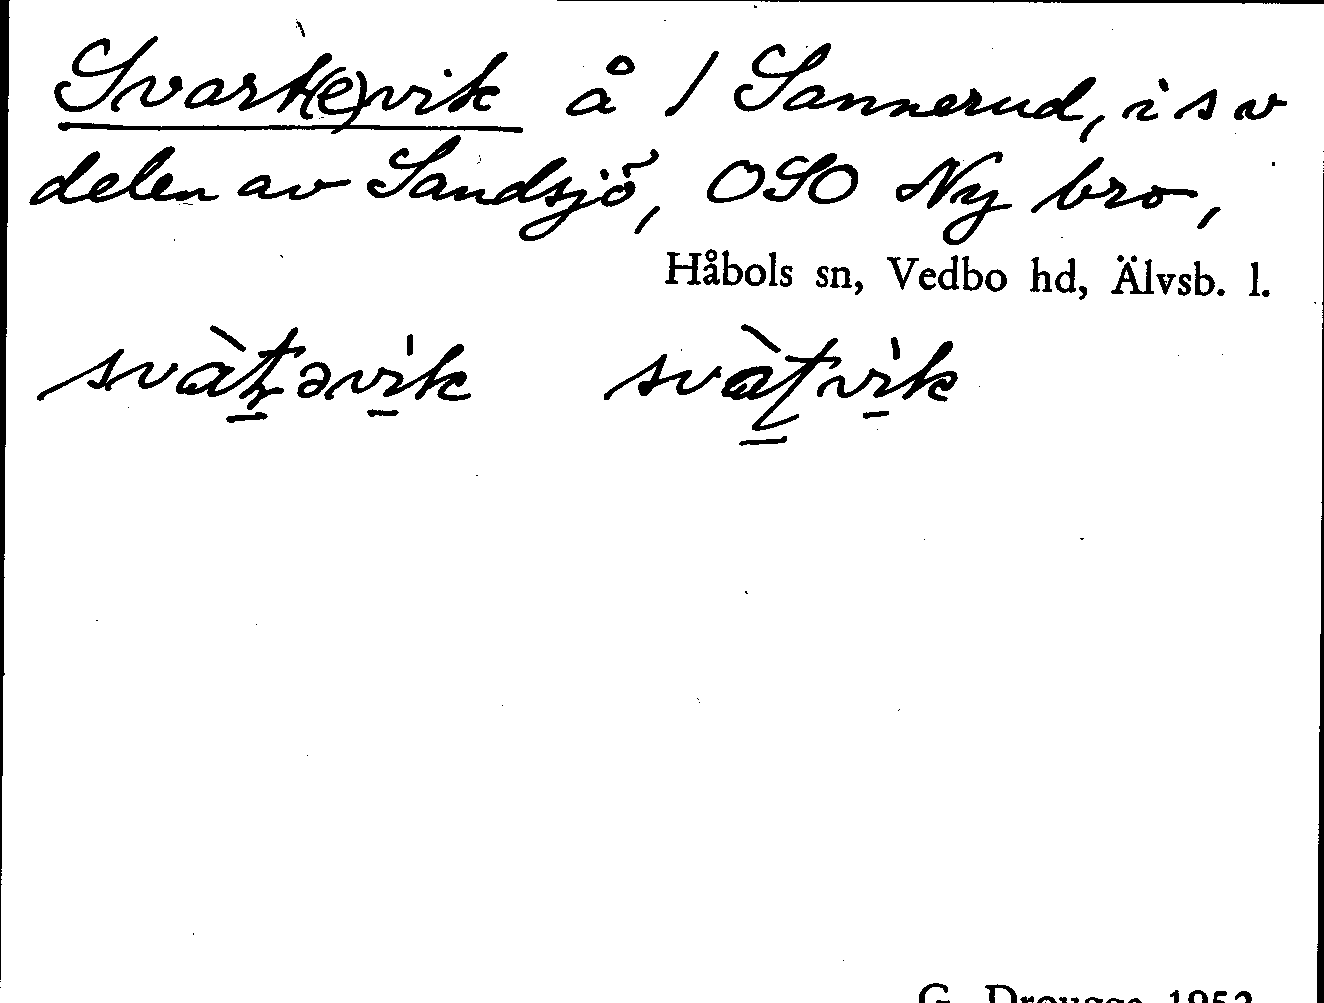 Svart(e)vik å 1 Sannerud, i s v
delen av Sandsjö, OSO Ny bro,
Håbols sn, Vedbo hd, Älvsb. l.
svàt̠əvi̠k svàt̠vi̠k
G. Drougge 1953